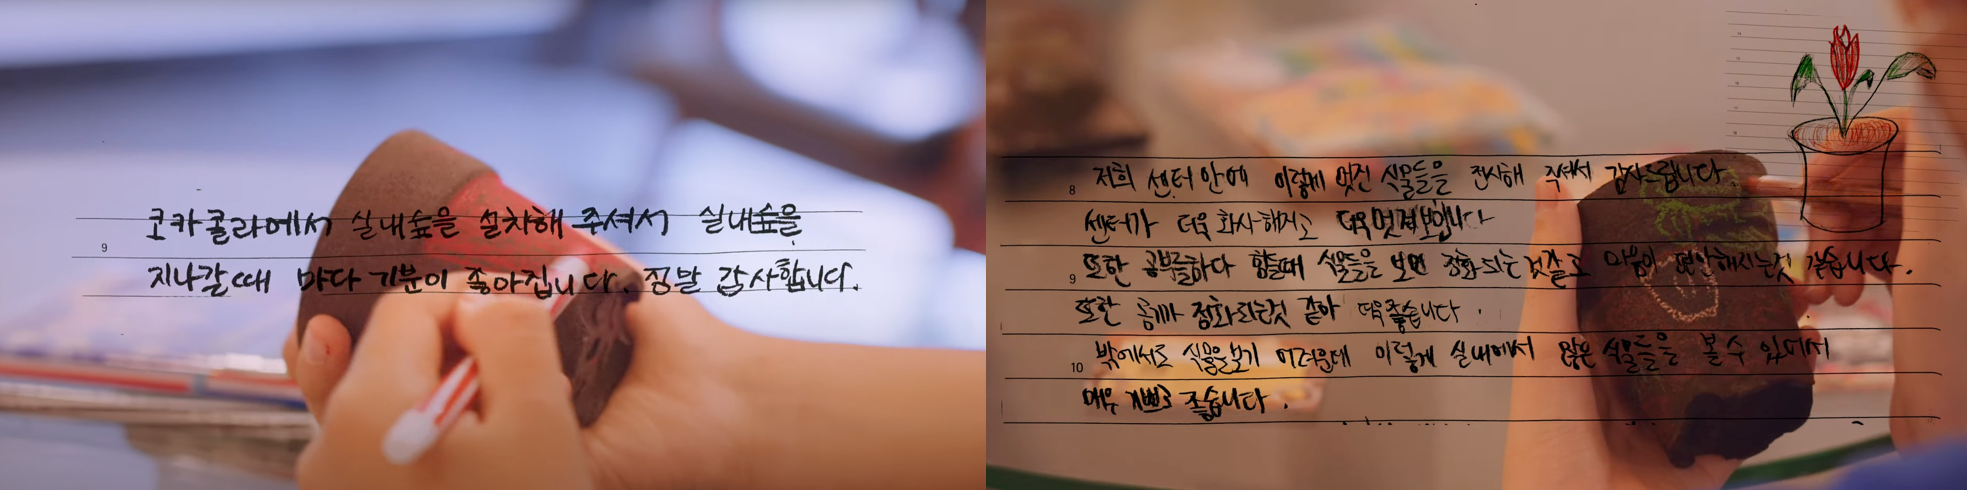 코카콜라에서 실내숲을 설치해 주셔서 실내숲을
9
지나갈때 마다 기분이 좋아집니다. 정말 감사합니다.
8
저희 센터 안에 이렇게 멋진 식물들을 전시해 주셔서 감사드립니다.
센터가 더욱 화사해지고 더욱 멋져보입니다
9
또한 공부를하다 힘들때 식물들을 보면 정화되는것같고 마음이 편안해지는것 같습니다.
또한 공기가 정화되는것 같아 더욱좋습니다.
10
밖에서도 식물을보기 어려운데 이렇게 실내에서 많은 식물들을 볼 수 있어서
매우 기쁘고 좋습니다.